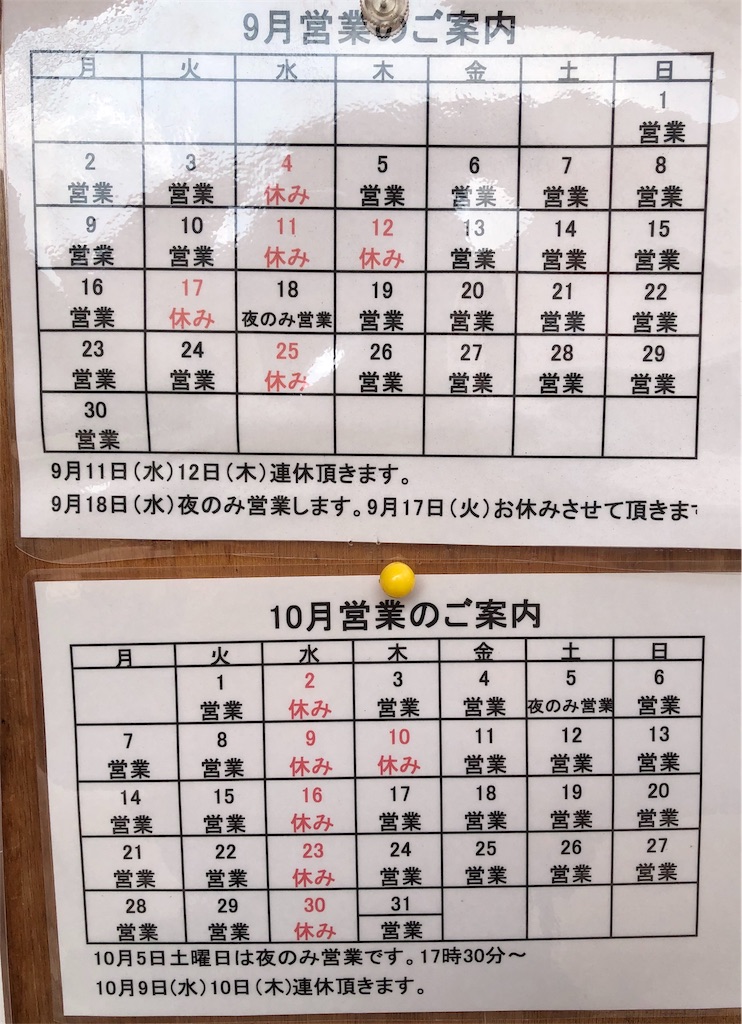 9月営業のご案内
月 火 水 木 金 土 日
1
営業
2 3 4 5 6 7 8
営業 営業 休み 営業 営業 営業 営業
9 10 11 12 13 14 15
営業 営業 休み 休み 営業 営業 営業
16 17 18 19 20 21 22
営業 休み 夜のみ営業 営業 営業 営業 営業
23 24 25 26 27 28 29
営業 営業 休み 営業 営業 営業 営業
30
営業
9月11日(水)12日(木)連休頂きます。
9月18日(水)夜のみ営業します。9月17日(火)お休みさせて頂きます
10月営業のご案内
月 火 水 木 金 土 日
1 2 3 4 5 6
営業 休み 営業 営業 夜のみ営業 営業
7 8 9 10 11 12 13
営業 営業 休み 休み 営業 営業 営業
14 15 16 17 18 19 20
営業 営業 休み 営業 営業 営業 営業
21 22 23 24 25 26 27
営業 営業 休み 営業 営業 営業 営業
28 29 30 31
営業 営業 休み 営業
10月5日土曜日は夜のみ営業です。17時30分～
10月9日(水)10日(木)連休頂きます。